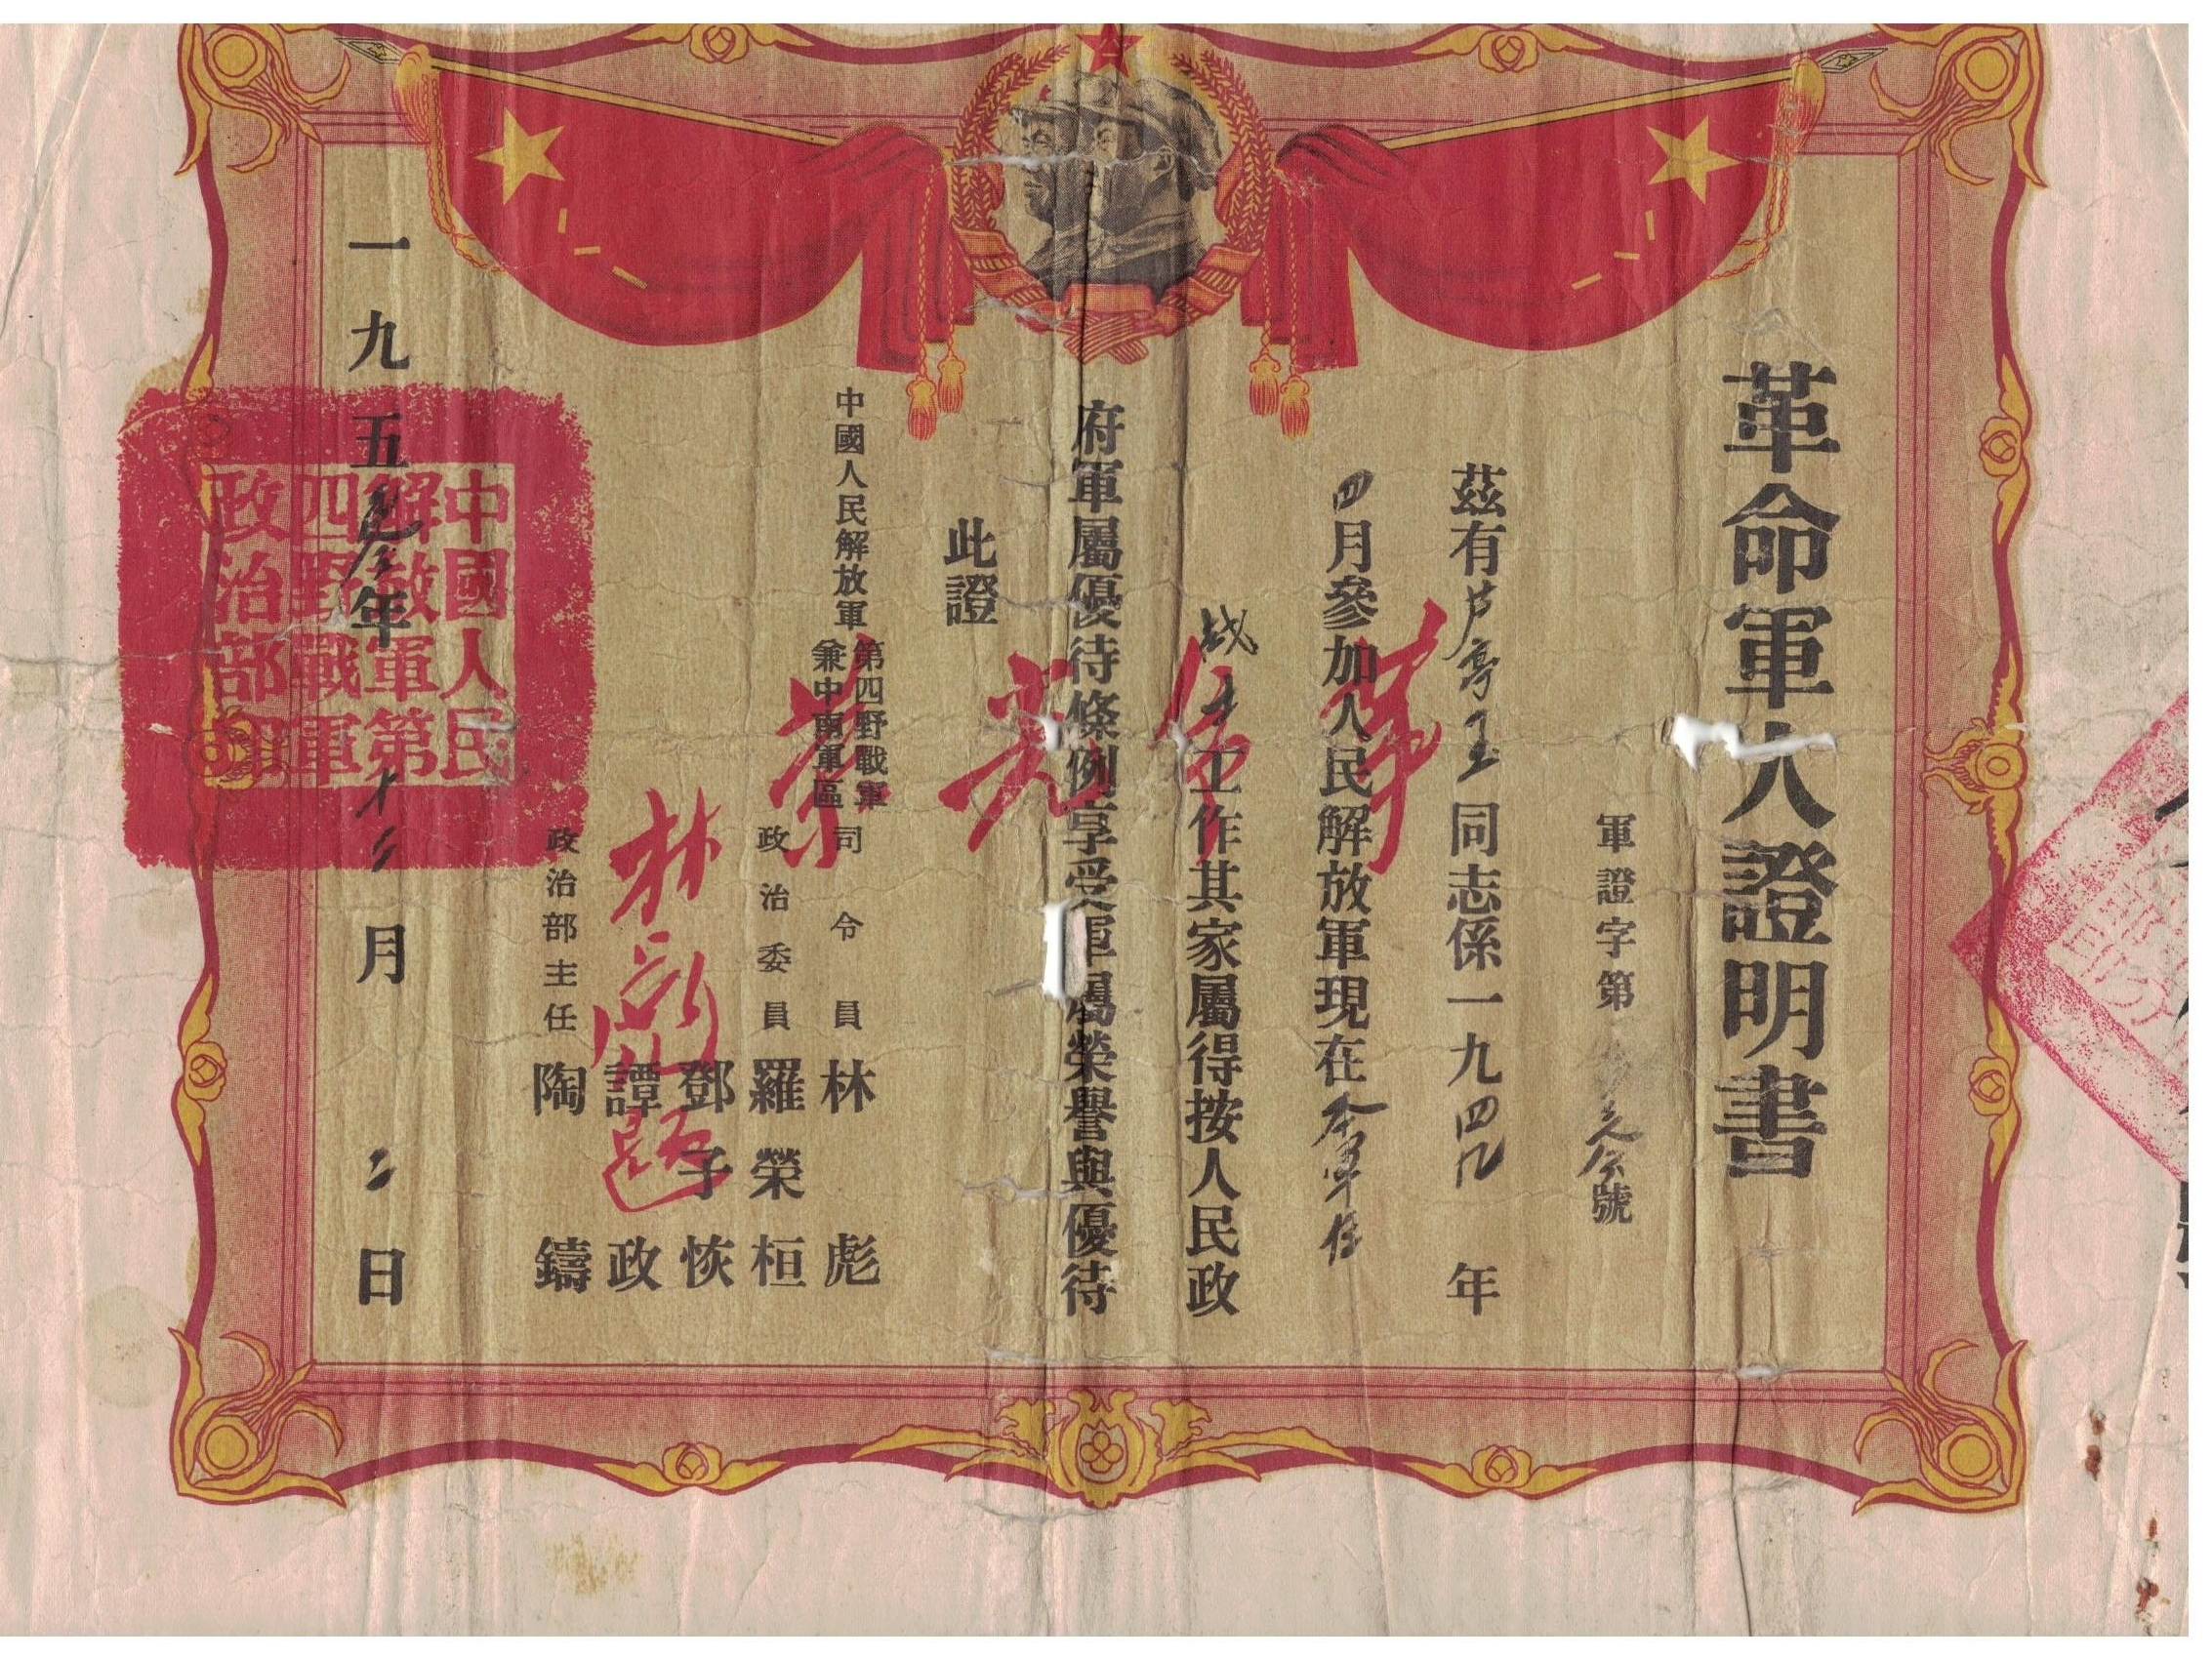 革命軍人證明書
軍證字第 号號
茲有芦亭玉同志係一九四九年
四月參加人民解放軍現在本軍任
战士工作其家屬得按人民政
府軍屬優待條例享受軍屬榮譽與優待
此證
革命光荣
林彪題
中國人民解放軍
第四野戰軍
兼中南軍區
司令員 林彪
政治委員 羅榮桓
鄧子恢
譚政
政治部主任 陶鑄
一九五 年十二月二日
中國人民
解放軍第
四野戰軍
政治部印